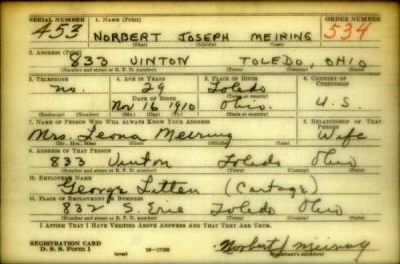 SERIAL NUMBER 1. NAME (Print) ORDER NUMBER
453 NORBERT JOSEPH MEIRING 534
(First) (Middle) (Last)
2. ADDRESS (Print)
833 VINTON TOLEDO, OHIO
(Number and street or R. F. D. number) (Town) (County) (State)
3. TELEPHONE 4. AGE IN YEARS 5. PLACE OF BIRTH 6. COUNTRY OF CITIZENSHIP
no. 29 Toledo
DATE OF BIRTH (Town or county)
Nov 16 1910 Ohio. U.S.
(Exchange) (Number) (Mo.) (Day) (Yr.) (State or country)
7. NAME OF PERSON WHO WILL ALWAYS KNOW YOUR ADDRESS 8. RELATIONSHIP OF THAT PERSON
Mrs. Leona Meiring Wife
(Mr., Mrs., Miss) (First) (Middle) (Last)
9. ADDRESS OF THAT PERSON
833 Vinton Toledo Ohio
(Number and street or R. F. D. number) (Town) (County) (State)
10. EMPLOYER'S NAME
George (Cartage)
11. PLACE OF EMPLOYMENT OR BUSINESS
832 S. Erie Toledo Ohio
(Number and street or R. F. D. number) (Town) (County) (State)
I AFFIRM THAT I HAVE VERIFIED ABOVE ANSWERS AND THAT THEY ARE TRUE.
REGISTRATION CARD
D. S. S. Form 1 (over) 16-17105 Norbert J Meiring
(Registrant's signature)